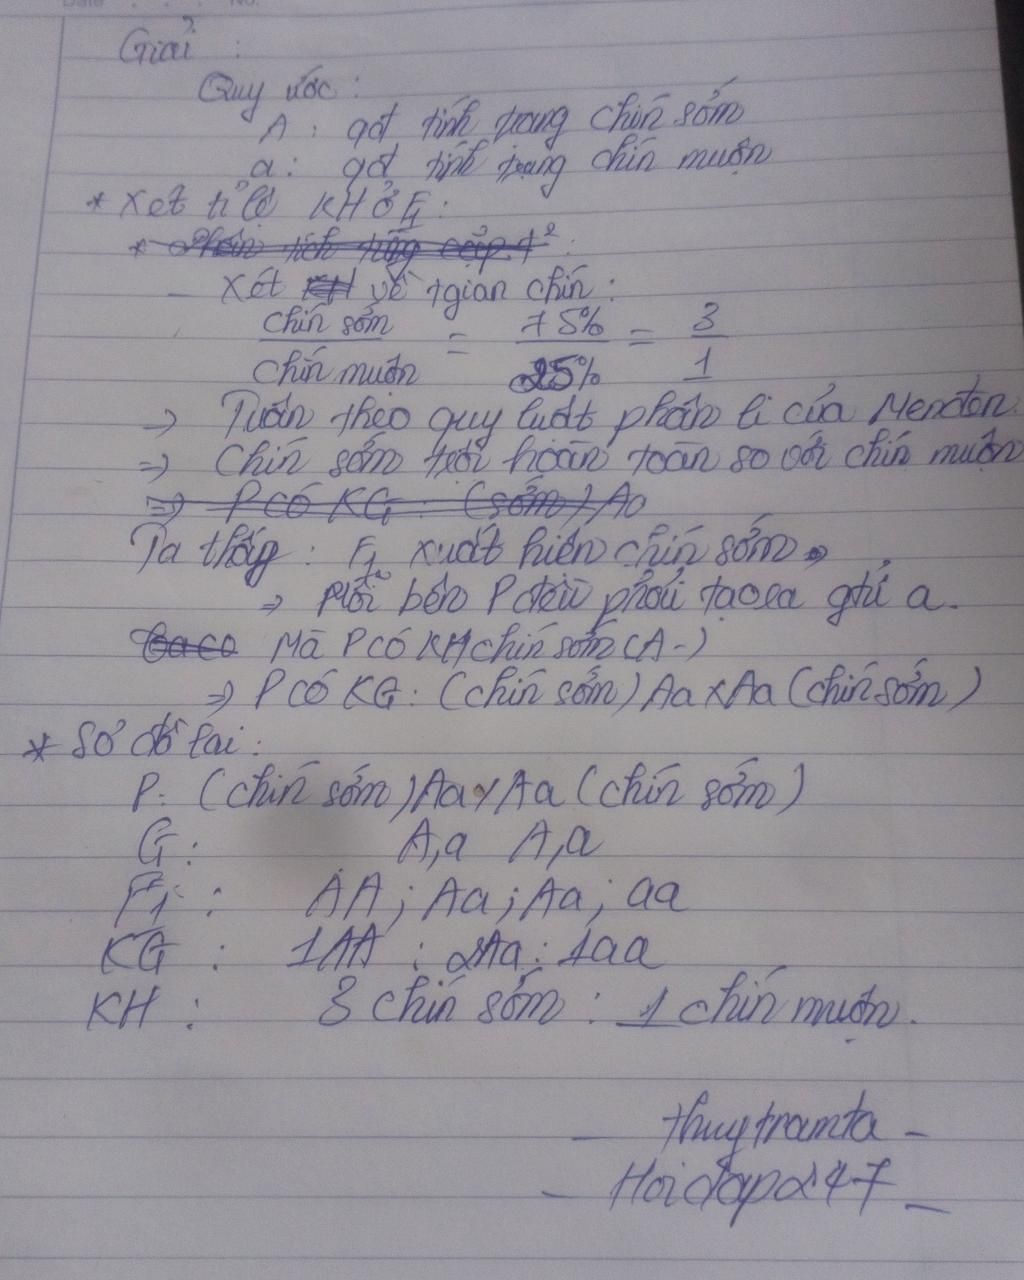 Date . . . No.
Giải :
Quy ước :
A : qđ tính trạng chín sớm
a : qđ tính trạng chín muộn
* Xét tỉ lệ KH ở F1 :
* Phân tích từng cặp t² :
- Xét KH về tgian chín :
chín sớm / chín muộn = 75% / 25% = 3 / 1
=> Tuân theo quy luật phân li của Menđen.
=> Chín sớm trội hoàn toàn so với chín muộn
=> P có KG : (sớm) Aa
Ta thấy : F1 xuất hiện chín sớm
=> Mỗi bên P đều phải tạo ra gtử a.
Mà P có KH chín sớm (A-)
=> P có KG : (chín sớm) Aa x Aa (chín sớm)
* Sơ đồ lai :
P : (chín sớm) Aa x Aa (chín sớm)
G : A,a A,a
F1 : AA ; Aa ; Aa ; aa
KG : 1AA : 2Aa : 1aa
KH : 3 chín sớm : 1 chín muộn.
- thuytramta -
- Hoidap247 -